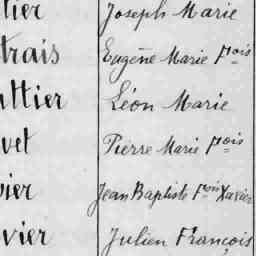 tier Joseph Marie
trais Eugène Marie Fçois
uttier Léon Marie
vet Pierre Marie Fçois
vier Jean Baptiste Fçois Xavier
vier Julien François